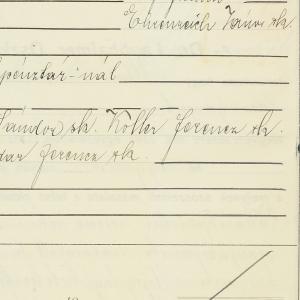 Ehrenreich Nándor sk.
pénztár-nál
Sándor sk. Koller Ferencz sk.
dar Ferencz sk.